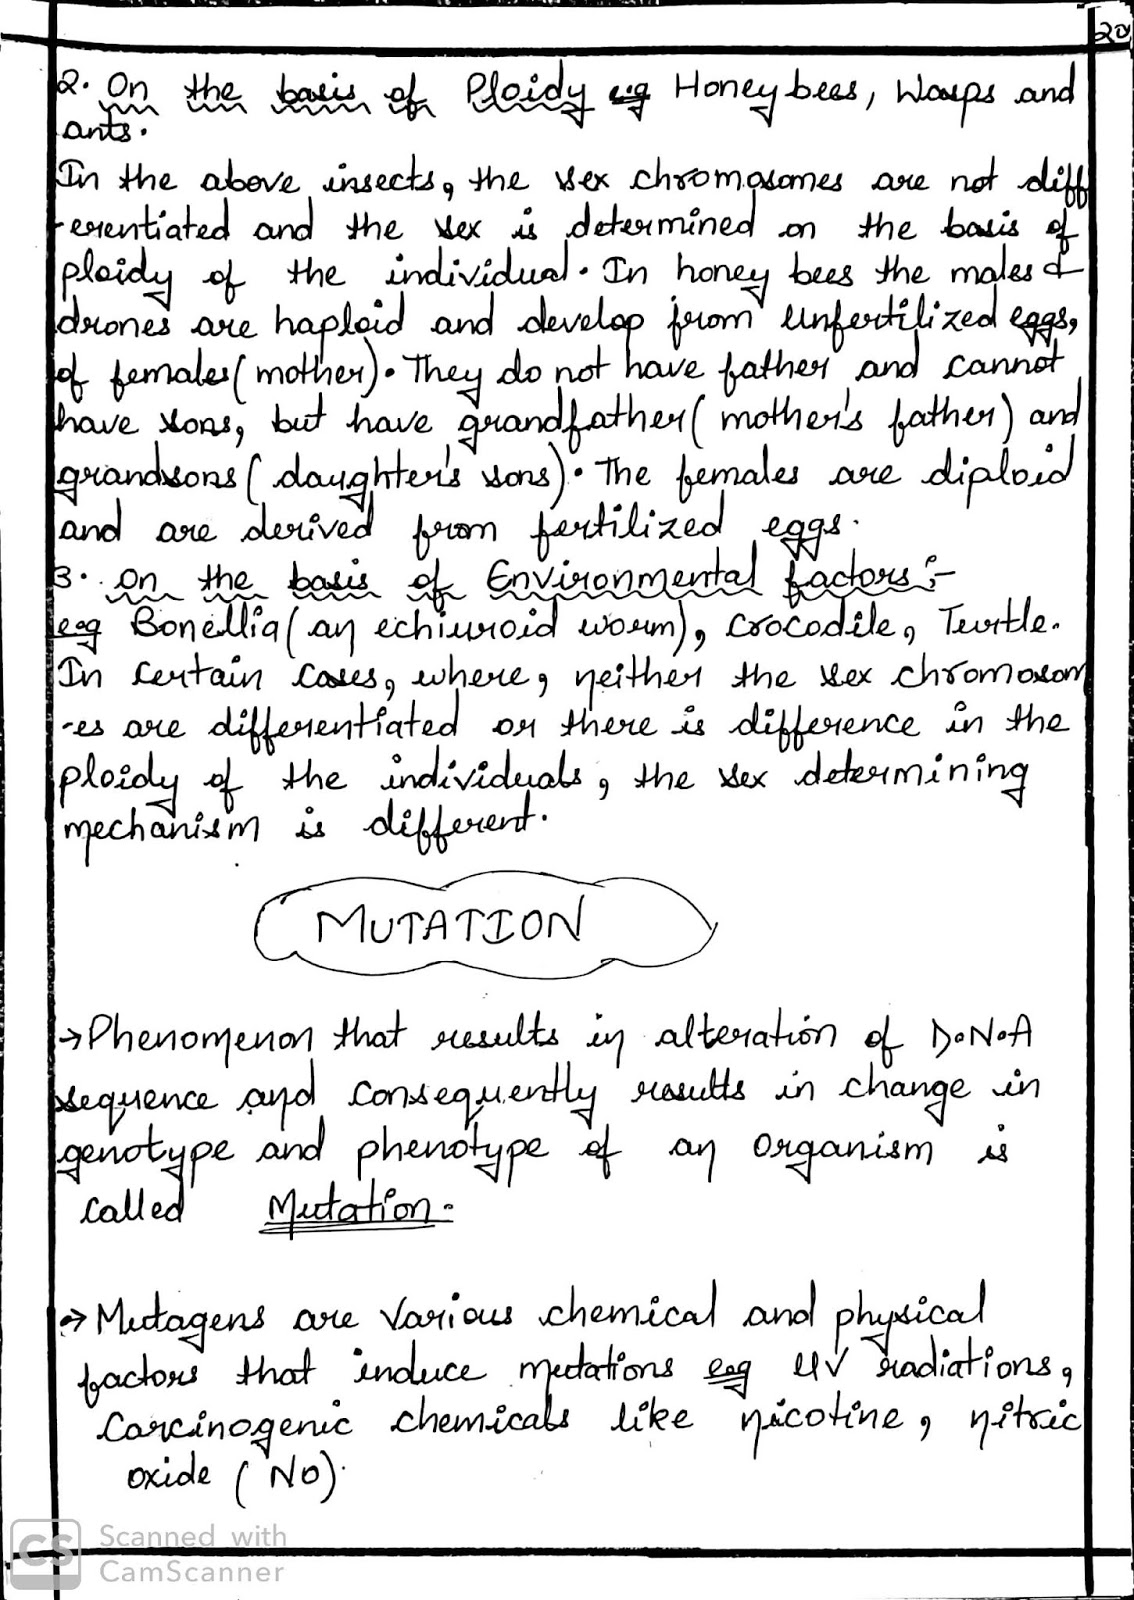 20
2. On the basis of Ploidy eg Honey bees, Wasps and
ants.
In the above insects, the sex chromosomes are not diff
-erentiated and the sex is determined on the basis of
ploidy of the individual. In honey bees the males &
drones are haploid and develop from unfertilized eggs,
of females (mother). They do not have father and cannot
have sons, but have grandfather (mother's father) and
grandsons (daughter's sons). The females are diploid
and are derived from fertilized eggs.
3. On the basis of Environmental factors :-
e.g Bonellia (an echiuroid worm), Crocodile, Turtle.
In certain cases, where, neither the sex chromosom
-es are differentiated or there is difference in the
ploidy of the individuals, the sex determining
mechanism is different.
MUTATION
→ Phenomenon that results in alteration of D.N.A
sequence and consequently results in change in
genotype and phenotype of an organism is
called Mutation.
→ Mutagens are various chemical and physical
factors that induce mutations eg UV radiations,
Carcinogenic chemicals like nicotine, nitric
oxide (NO).
CS Scanned with
CamScanner